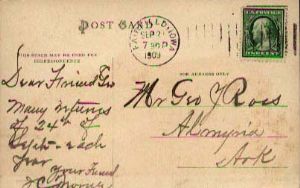 POST CARD
FAIRFIELD, IOWA
SEP 21
7 30 P
1909
THIS SPACE MAY BE USED FOR
CORRESPONDENCE
FOR ADDRESS ONLY
Dear Friend Geo
Many returns
of 24th of
Sept- each
Year
Your Friend
Mr Geo J Ross
Almyra
Ark